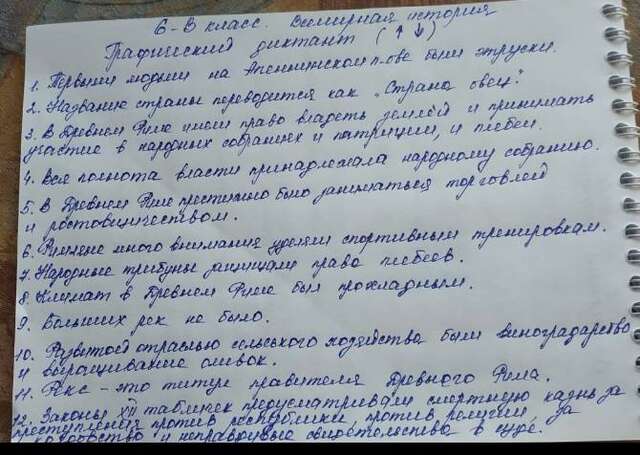 6-В класс. Всемирная история
Графический диктант (↑↓)
1. Первыми людьми на Апеннинском п-ове были этруски.
2. Название страны переводится как "Страна овец".
3. В Древнем Риме имели право владеть землёй и принимать
участие в народных собраниях и патриции, и плебеи.
4. Вся полнота власти принадлежала народному собранию.
5. В Древнем Риме престижно было заниматься торговлей
и ростовщичеством.
6. Римляне много внимания уделяли спортивным тренировкам.
7. Народные трибуны защищали права плебеев.
8. Климат в Древнем Риме был прохладным.
9. Больших рек не было.
10. Развитой отраслью сельского хозяйства были виноградарство
и выращивание оливок.
11. Рекс - это титул правителя Древнего Рима.
12. Законы XII табличек предусматривали смертную казнь за
преступления против республики, против религии, за
колдовство и неправдивые свидетельства в суде.